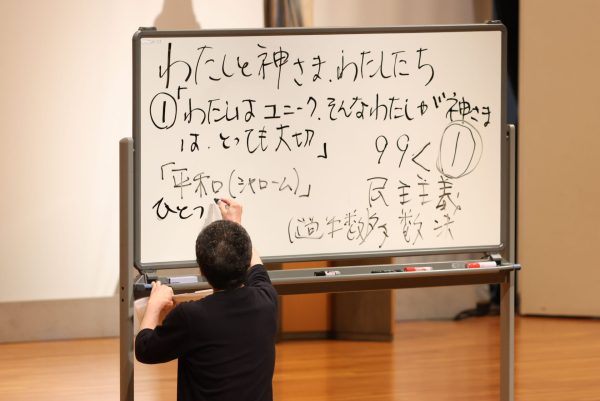 わたしと神さま.わたしたち
①「わたしは ユニーク.そんなわたしが神さま
は.とっても大切」
99<①
「平和(シャローム)」
民主主義.
ひとつ
(過半数多数決